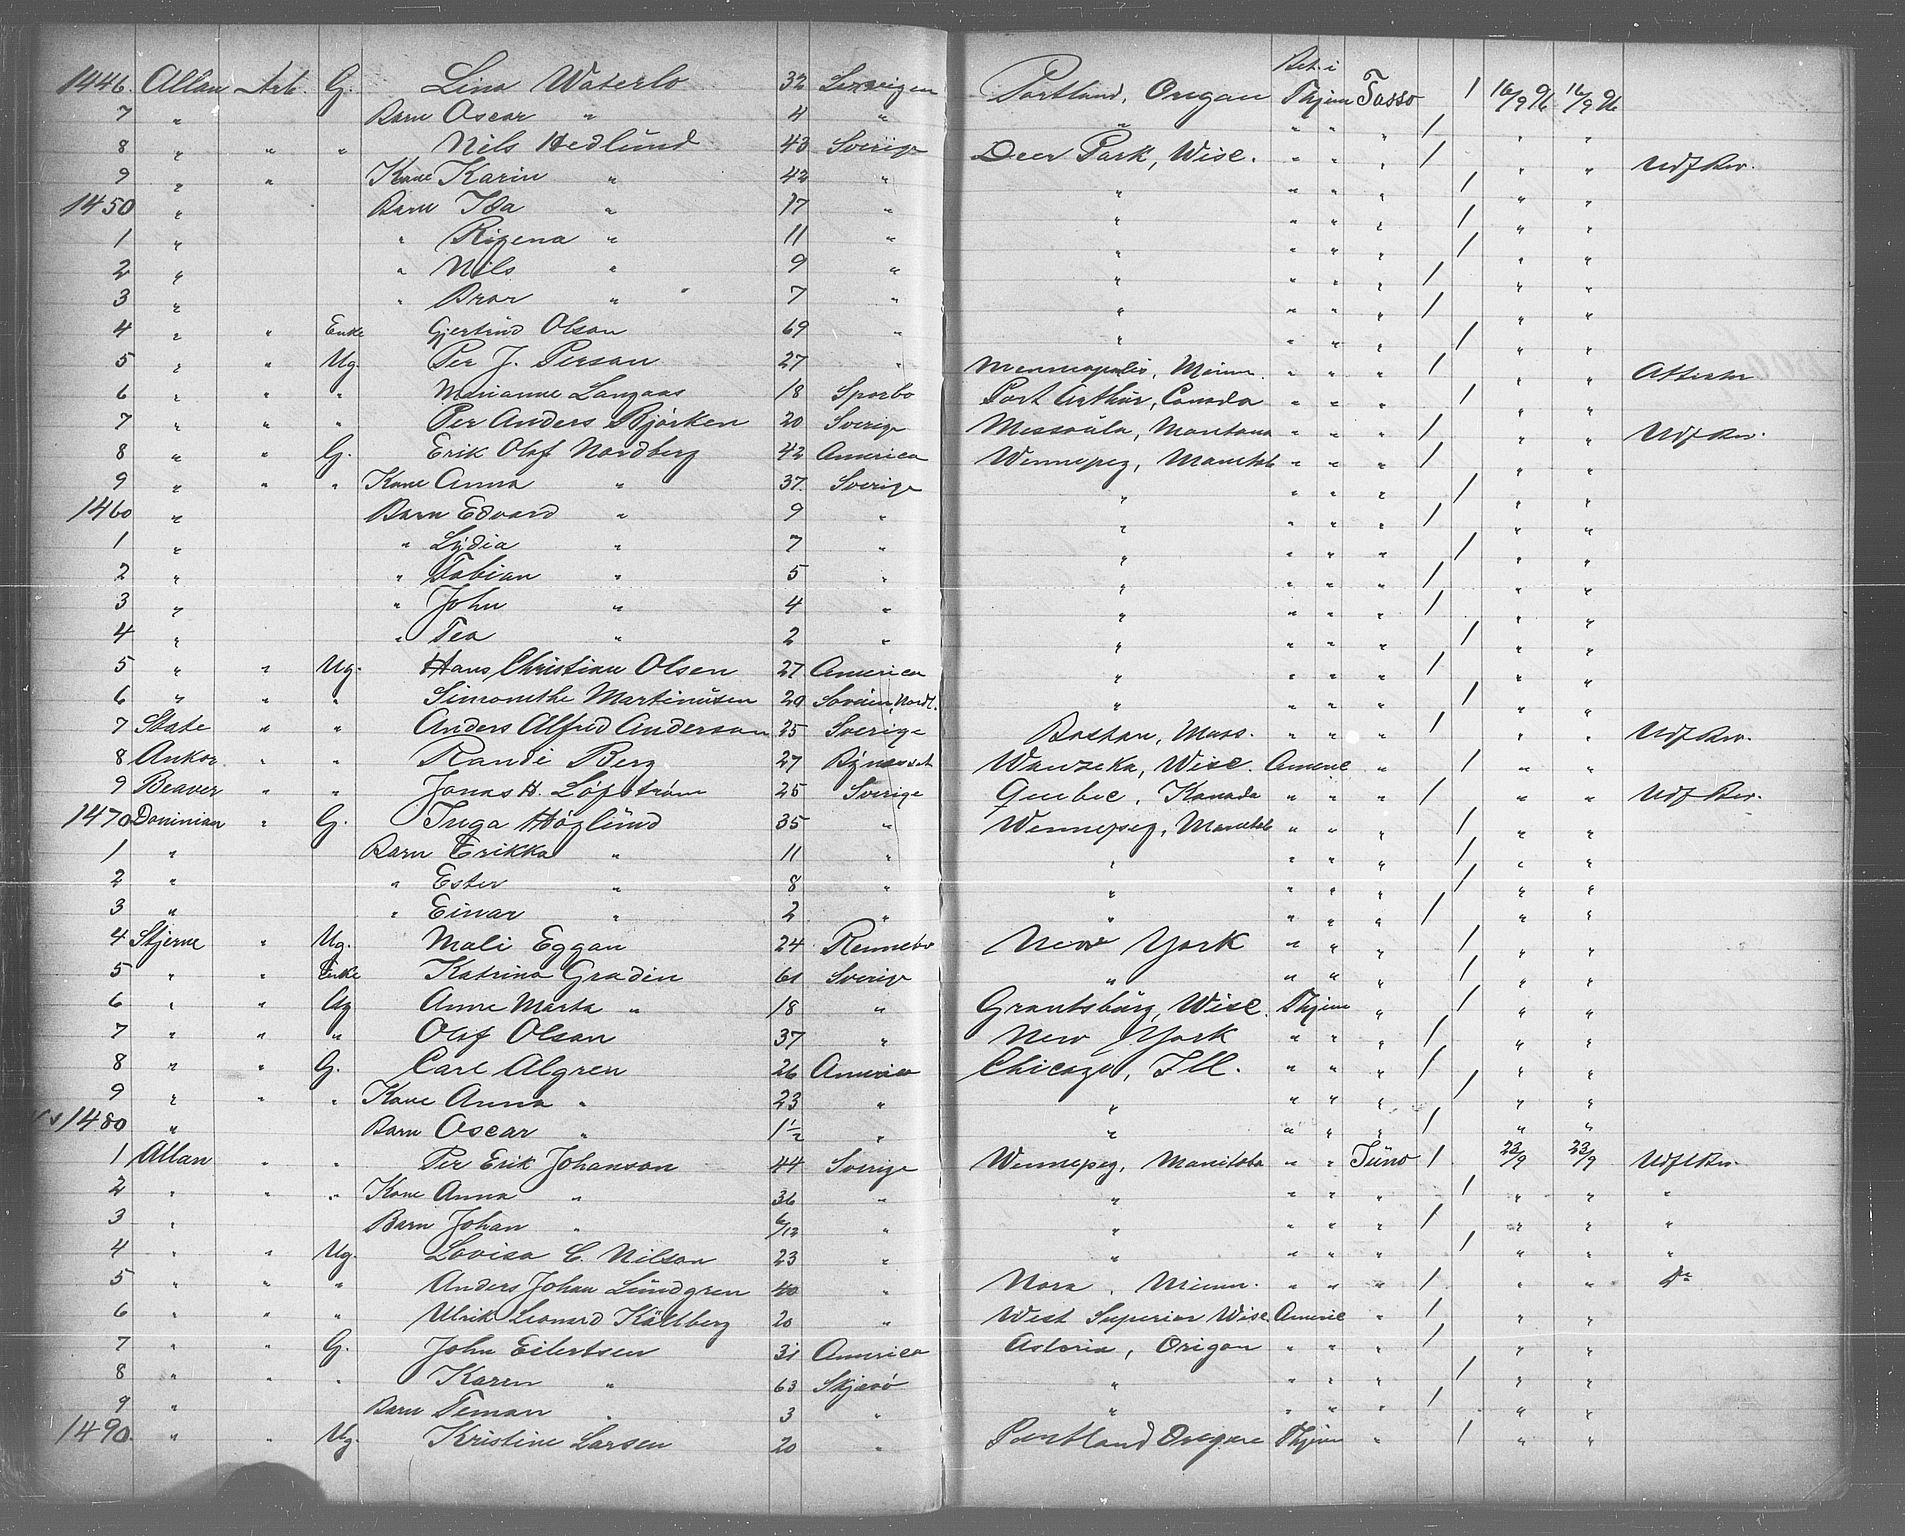 Bet. i
1446. Allan Arb. G. Lina Waterlo 32 Levangen Portland, Oregan Thjem Tasso 1 16/9 96 16/9 96
7 " Barn Oscar " 4 " " " " " 1 " "
8 " " " Nils Hedlund 43 Sverige Deer Park, Wisc. " " " 1 " " Udf Bev.
9 " " Kone Karin " 42 " " " " " 1 " "
1450 " Barn Ida " 17 " " " " " 1 " "
1 " " " 11 " " " " " 1 " "
2 " " Nils " 9 " " " " " 1 " "
3 " " Bror " 7 " " " " " 1 " "
4 " " Enke Gjertrud Olson 69 " " " " " 1 " "
5 " " Ug. Per J. Person 27 " Menneapolis, Minn. " " " 1 " "
6 " " " Marianne Langaas 18 Sparbo Port Arthur, Canada " " " 1 " "
7 " " " Per Anders Bjørken 20 Sverige Messoula, Montana " " " 1 " " Udf Bev.
8 " " G. Erik Olof Nordberg 42 America Wennepeg, Manitob " " " 1 " "
9 " " " Kone Anna " 37. Sverige " " " " 1 " "
1460 " Barn Edvard " 9 " " " " " 1 " "
1 " " Lydia " 7 " " " " " 1 " "
2 " " Fabian " 5 " " " " " 1 " "
3 " " John " 4 " " " " " 1 " "
4 " " Tea " 2 " " " " " 1 " "
5 " " Ug. Hans Christian Olsen 27 America " " " " 1 " "
6 " " " Simonethe Martinusen 29 Nordl. " " " " 1 " "
7 State " " Anders Alfred Anderson 25 Sverige Boston, Mass. " " " 1 " " Udf Bev.
8 Ankor " " Randi Berg 27 Bynesset Wauzeka, Wisc. Americ " 1 " "
9 Beaver " " Jonas H. Löfström 25 Sverige Quebec, Kanada " " " 1 " " Udf Bev.
1470 Dominian " G. Inga Höglund 35 " Wennepeg, Manitob " " " 1 " "
1 " Barn Erikka " 11 " " " " " 1 " "
2 " " Ester " 8 " " " " " 1 " "
3 " " Einar " 2 " " " " " 1 " "
4 Stjerne " Ug. Mali Eggan 24 Rennebo New York " " " 1 " "
5 " " Enke Katrina Gradin 61 Sverig " " " " 1 " "
6 " " Ug Anne Marta " 18 " Grantsburg, Wisc. Thjem " 1 " "
7 " " " Olof Olson 37 " New York " " " 1 " "
8 " " G. Carl Algren 26 America Chicago, Ill. " " " 1 " "
9 " " " Kone Anna " 23 " " " " " 1 " "
1480 " Barn Oscar " 1½ " " " " " 1 " "
1 Allan " " Per Erik Johanson 44 Sverige Wennepeg, Manitoba " " Juno 1 23/9 23/9 Udf Bev.
2 " " " Kone Anna " 36 " " " " " 1 " " "
3 " Barn Johan " 6/12 " " " " " 1 " " "
4 " " Ug. Lovisa C. Nilson 23 " " " " " 1 " " "
5 " " " Anders Johan Lundgren 40 " Nora, Minn. " " " 1 " " Do
6 " " " Ulrik Leonard Källberg 20 " West Superior Wisc. Americ " 1 " "
7 " " G. John Eilertsen 31 America Astoria, Origon " " " 1 " "
8 " " " Karen " 63 " " " " 1 " "
9 " Barn Teman " 3 " " " " " 1 " "
1490. " " Ug. Kristine Larsen 20 " Portland Oregon Thjem " 1 " "